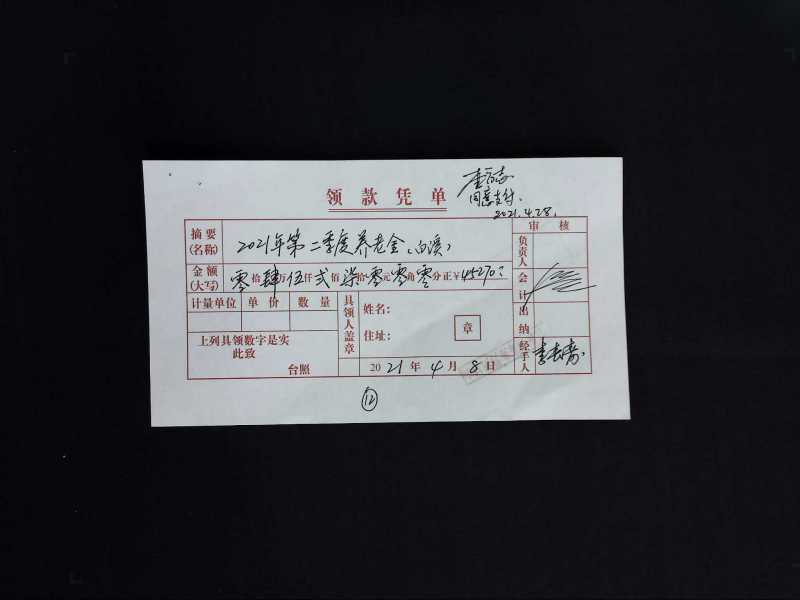 领款凭单
同意支付.
2021.4.28.
摘要
(名称)
2021年第二季度养老金(白溪)
审核
负责人
金额
(大写)
零拾肆万伍仟弍佰柒拾零元零角零分正¥45270.00
会计
计量单位 单价 数量
具领人盖章
姓名:
住址:
章
出纳
上列具领数字是实
此致
台照
2021年4月8日
经手人
12